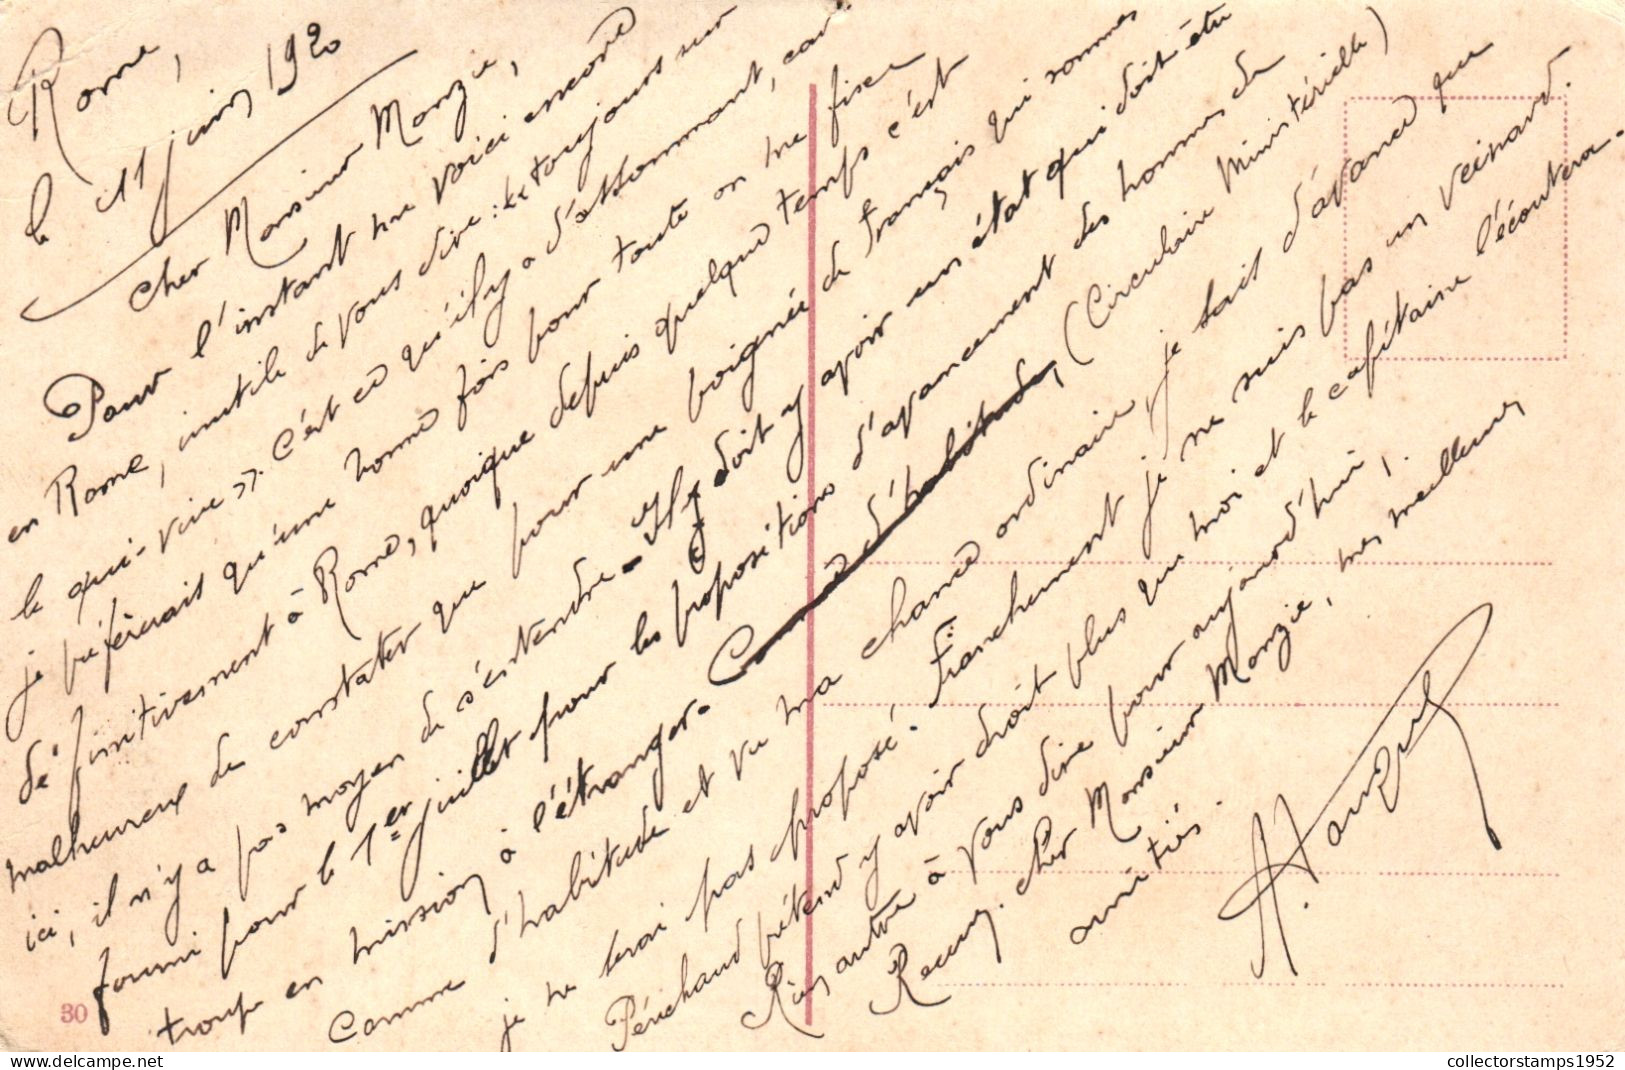 Rome,
le 11 juin 1920
Cher Monsieur Monzie,
Pour l'instant me voici encore
en Rome, inutile de vous dire : toujours sur
le qui-vive ». C'est ce qu'il y a d'assommant, car
je préférerais qu'une bonne fois pour toute on me fixe
définitivement à Rome, quoique depuis quelque temps c'est
malheureux de constater que pour une poignée de français qui sommes
ici, il n'y a pas moyen de s'entendre - Il y doit y avoir un état qui doit être
fourni pour le 1er juillet pour les propositions d'avancement des hommes de
troupe en mission à l'étranger. Comme d'habitude, (Circulaire Ministérielle)
Comme d'habitude et vu ma chance ordinaire, je sais d'avance que
je ne serai pas proposé. Franchement je ne suis pas un veinard.
Périchaud prétend y avoir droit plus que moi et le capitaine l'écoutera.
Rien autre à vous dire pour aujourd'hui,
Recevez, cher Monsieur Monzie, mes meilleures
amitiés.
30
collectorstamps1952